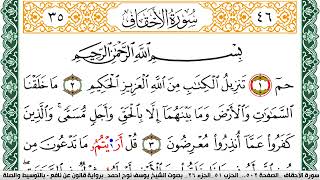 ٤٦ سُورَةُ الْأَحْقَافِ ٣٥
بِسْمِ اللَّهِ الرَّحْمَٰنِ الرَّحِيمِ
حمٓ ١ تَنزِيلُ الْكِتَٰبِ مِنَ اللَّهِ الْعَزِيزِ الْحَكِيمِ ٢ مَا خَلَقْنَا
السَّمَٰوَٰتِ وَالْأَرْضَ وَمَا بَيْنَهُمَا إِلَّا بِالْحَقِّ وَأَجَلٍ مُّسَمًّى وَالَّذِينَ
كَفَرُوا عَمَّا أُنذِرُوا مُعْرِضُونَ ٣ قُلْ أَرَٰيْتُم مَّا تَدْعُونَ مِن
سورة الاحقاف الصفحة الجزء ٢٦ بصوت الشيخ يوسف نوح احمد برواية قالون عن نافع - بالتوسيط والصلة